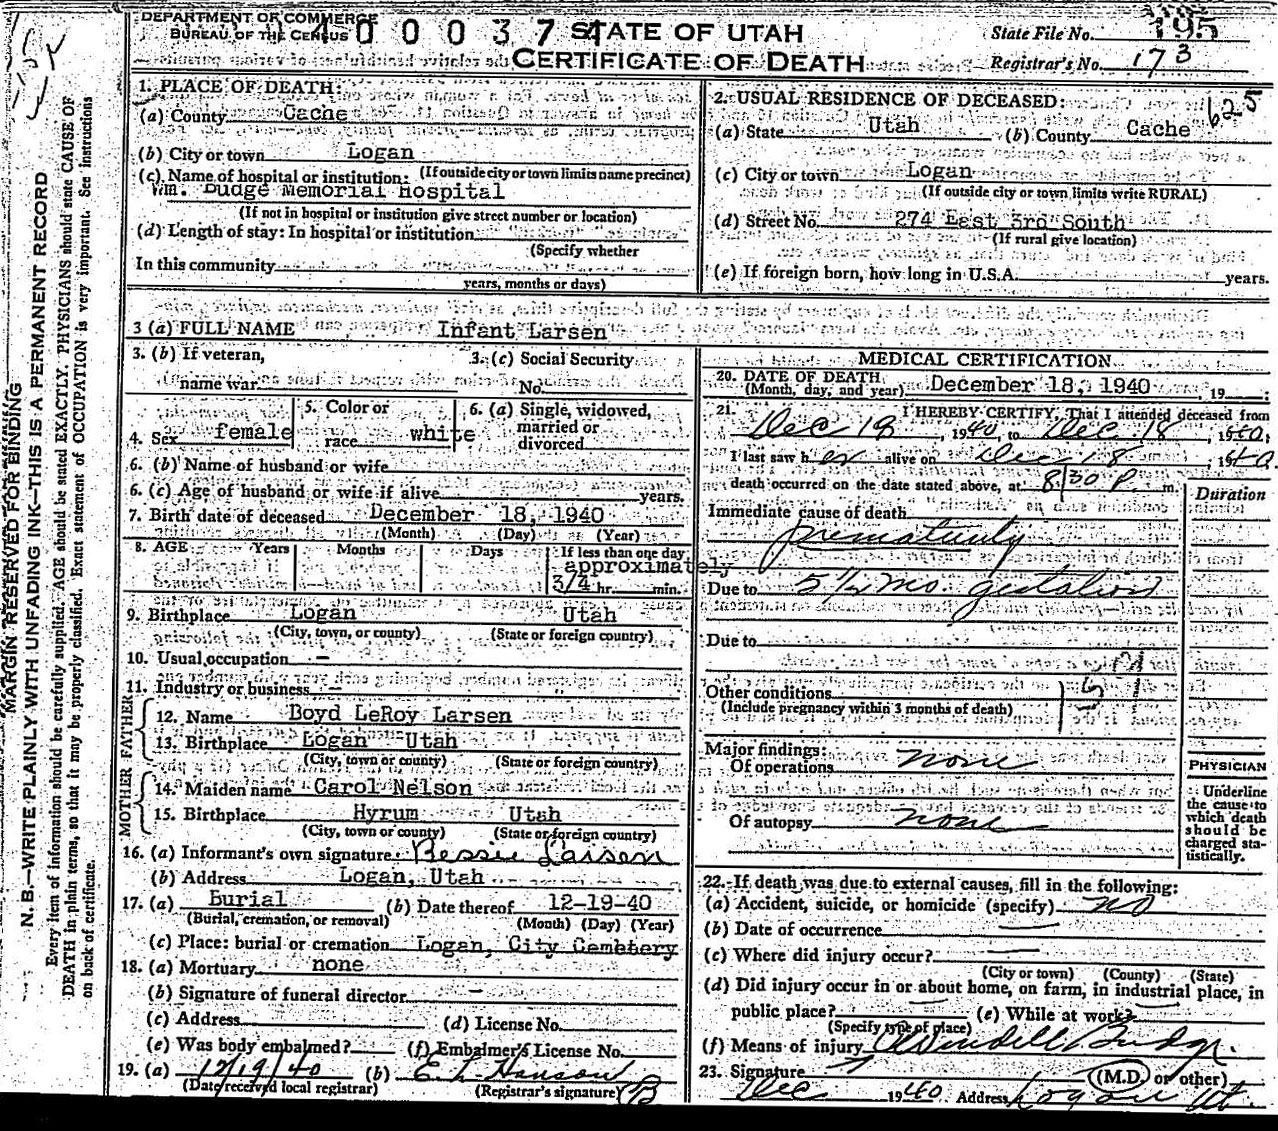 DEPARTMENT OF COMMERCE
BUREAU OF THE CENSUS
STATE OF UTAH
CERTIFICATE OF DEATH
State File No. 195
Registrar's No. 173
1. PLACE OF DEATH:
(a) County Cache
(b) City or town Logan
(If outside city or town limits name precinct)
(c) Name of hospital or institution:
Wm. Budge Memorial Hospital
(If not in hospital or institution give street number or location)
(d) Length of stay: In hospital or institution
(Specify whether
In this community
years, months or days)
2. USUAL RESIDENCE OF DECEASED: 625
(a) State Utah (b) County Cache
(c) City or town Logan
(If outside city or town limits write RURAL)
(d) Street No. 274 East 3rd South
(If rural give location)
(e) If foreign born, how long in U.S.A. years.
3 (a) FULL NAME Infant Larsen
3. (b) If veteran,
name war
3. (c) Social Security
No.
4. Sex female
5. Color or
race white
6. (a) Single, widowed,
married or
divorced
6. (b) Name of husband or wife
6. (c) Age of husband or wife if alive years.
7. Birth date of deceased December 18, 1940
(Month) (Day) (Year)
8. AGE Years Months Days If less than one day
approximately
3/4 hr. min.
9. Birthplace Logan Utah
(City, town, or county) (State or foreign country)
10. Usual occupation —
11. Industry or business —
FATHER
12. Name Boyd LeRoy Larsen
13. Birthplace Logan Utah
(City, town or county) (State or foreign country)
MOTHER
14. Maiden name Carol Nelson
15. Birthplace Hyrum Utah
(City, town or county) (State or foreign country)
16. (a) Informant's own signature Bessie Larsen
(b) Address Logan, Utah
17. (a) Burial (b) Date thereof 12-19-40
(Burial, cremation, or removal) (Month) (Day) (Year)
(c) Place: burial or cremation Logan, City Cemetery
18. (a) Mortuary none
(b) Signature of funeral director —
(c) Address (d) License No.
(e) Was body embalmed? (f) Embalmer's License No.
19. (a) 12/19/40 (b) E. L. Hanson
(Date received local registrar) (Registrar's signature) B
MEDICAL CERTIFICATION
20. DATE OF DEATH
(Month, day, and year) December 18, 1940, 19
21. I HEREBY CERTIFY, That I attended deceased from
Dec 18, 1940, to Dec. 18, 1940,
I last saw her alive on Dec 18 1940,
death occurred on the date stated above, at 8:30 P. m.
Duration
Immediate cause of death
prematurity
Due to 5 1/2 mo. gestation
Due to
Other conditions
(Include pregnancy within 3 months of death)
Major findings:
Of operations none
Of autopsy none
PHYSICIAN
Underline
the cause to
which death
should be
charged sta-
tistically.
22. If death was due to external causes, fill in the following:
(a) Accident, suicide, or homicide (specify) no
(b) Date of occurrence —
(c) Where did injury occur? —
(City or town) (County) (State)
(d) Did injury occur in or about home, on farm, in industrial place, in
public place? — (e) While at work? —
(Specify type of place)
(f) Means of injury
23. Signature Budge
(M.D. or other)
Dec 1940 Address Logan Ut.
MARGIN RESERVED FOR BINDING
N. B.—WRITE PLAINLY WITH UNFADING INK—THIS IS A PERMANENT RECORD
Every item of information should be carefully supplied. AGE should be stated EXACTLY. PHYSICIANS should state CAUSE OF
DEATH in plain terms, so that it may be properly classified. Exact statement of OCCUPATION is very important. See instructions
on back of certificate.